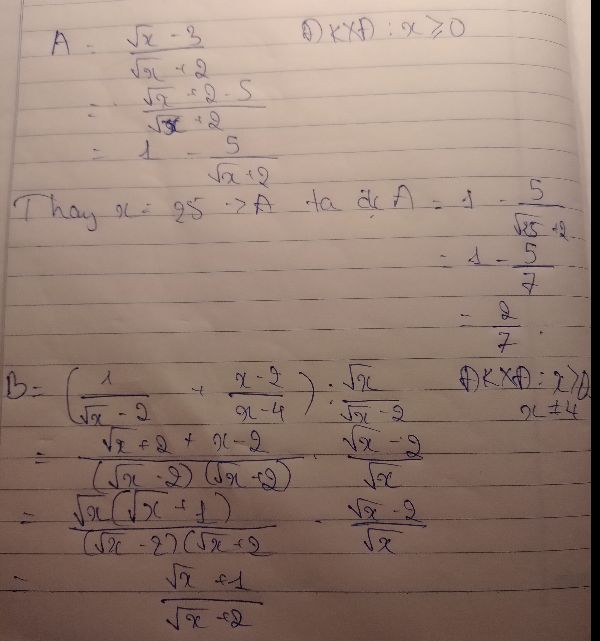 A = (√x - 3)/(√x + 2) ĐKXĐ: x ≥ 0
= (√x + 2 - 5)/(√x + 2)
= 1 - 5/(√x + 2)
Thay x = 25 -> A ta đc A = 1 - 5/(√25 + 2)
= 1 - 5/7
= 2/7.
B = (1/(√x - 2) + (x - 2)/(x - 4)) : √x/(√x - 2) ĐKXĐ: x > 0
x ≠ 4
= (√x + 2 + x - 2)/((√x - 2)(√x + 2)) · (√x - 2)/√x
= √x(√x + 1)/((√x - 2)(√x + 2 · (√x - 2)/√x
= (√x + 1)/(√x + 2)